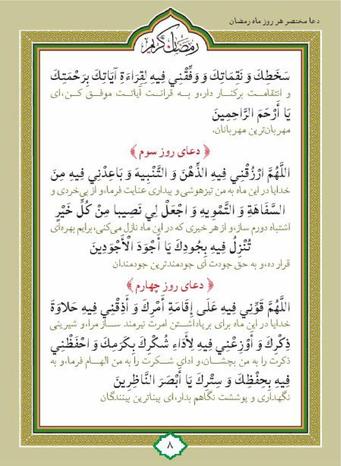 دعا مختصر هر روز ماه رمضان
رمضان کریم
سَخَطِكَ وَ نَقِمَاتِكَ وَ وَفِّقْنِي فِيهِ لِقِرَاءَةِ آيَاتِكَ بِرَحْمَتِكَ
و انتقامت برکنار دار،و به قرائت آیاتت موفق کن،ای
يَا أَرْحَمَ الرَّاحِمِينَ
مهربان‌ترین مهربانان.
﴿ دعای روز سوم ﴾
اللَّهُمَّ ارْزُقْنِي فِيهِ الذِّهْنَ وَ التَّنْبِيهَ وَ بَاعِدْنِي فِيهِ مِنَ
خدایا در این ماه به من تیزهوشی و بیداری عنایت فرما،و از بی‌خردی و
السَّفَاهَةِ وَ التَّمْوِيهِ وَ اجْعَلْ لِي نَصِيبا مِنْ كُلِّ خَيْرٍ
اشتباه دورم ساز،و از هر خیری که در این ماه نازل می‌کنی،برایم بهره‌ای
تُنْزِلُ فِيهِ بِجُودِكَ يَا أَجْوَدَ الْأَجْوَدِينَ
قرار ده،و به حق جودت ای جودمندترین جودمندان
﴿ دعای روز چهارم ﴾
اللَّهُمَّ قَوِّنِي فِيهِ عَلَى إِقَامَةِ أَمْرِكَ وَ أَذِقْنِي فِيهِ حَلاوَةَ
خدایا در این ماه برای برپاداشتن امرت نیرمند ساز مرا،و شیرینی
ذِكْرِكَ وَ أَوْزِعْنِي فِيهِ لِأَدَاءِ شُكْرِكَ بِكَرَمِكَ وَ احْفَظْنِي
ذکرت را به من بچشان،و ادای شکرت را به من الهام فرما،و به
فِيهِ بِحِفْظِكَ وَ سِتْرِكَ يَا أَبْصَرَ النَّاظِرِينَ
نگهداری و پوششت نگاهم بدار،ای بیناترین بینندگان
۸